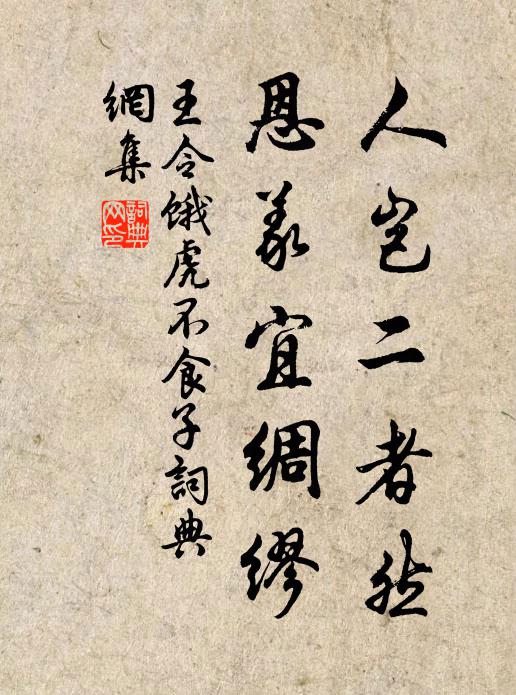 人豈二者然
恩義宜綢繆
王令餓虎不食子詞典
網集
詞典網印